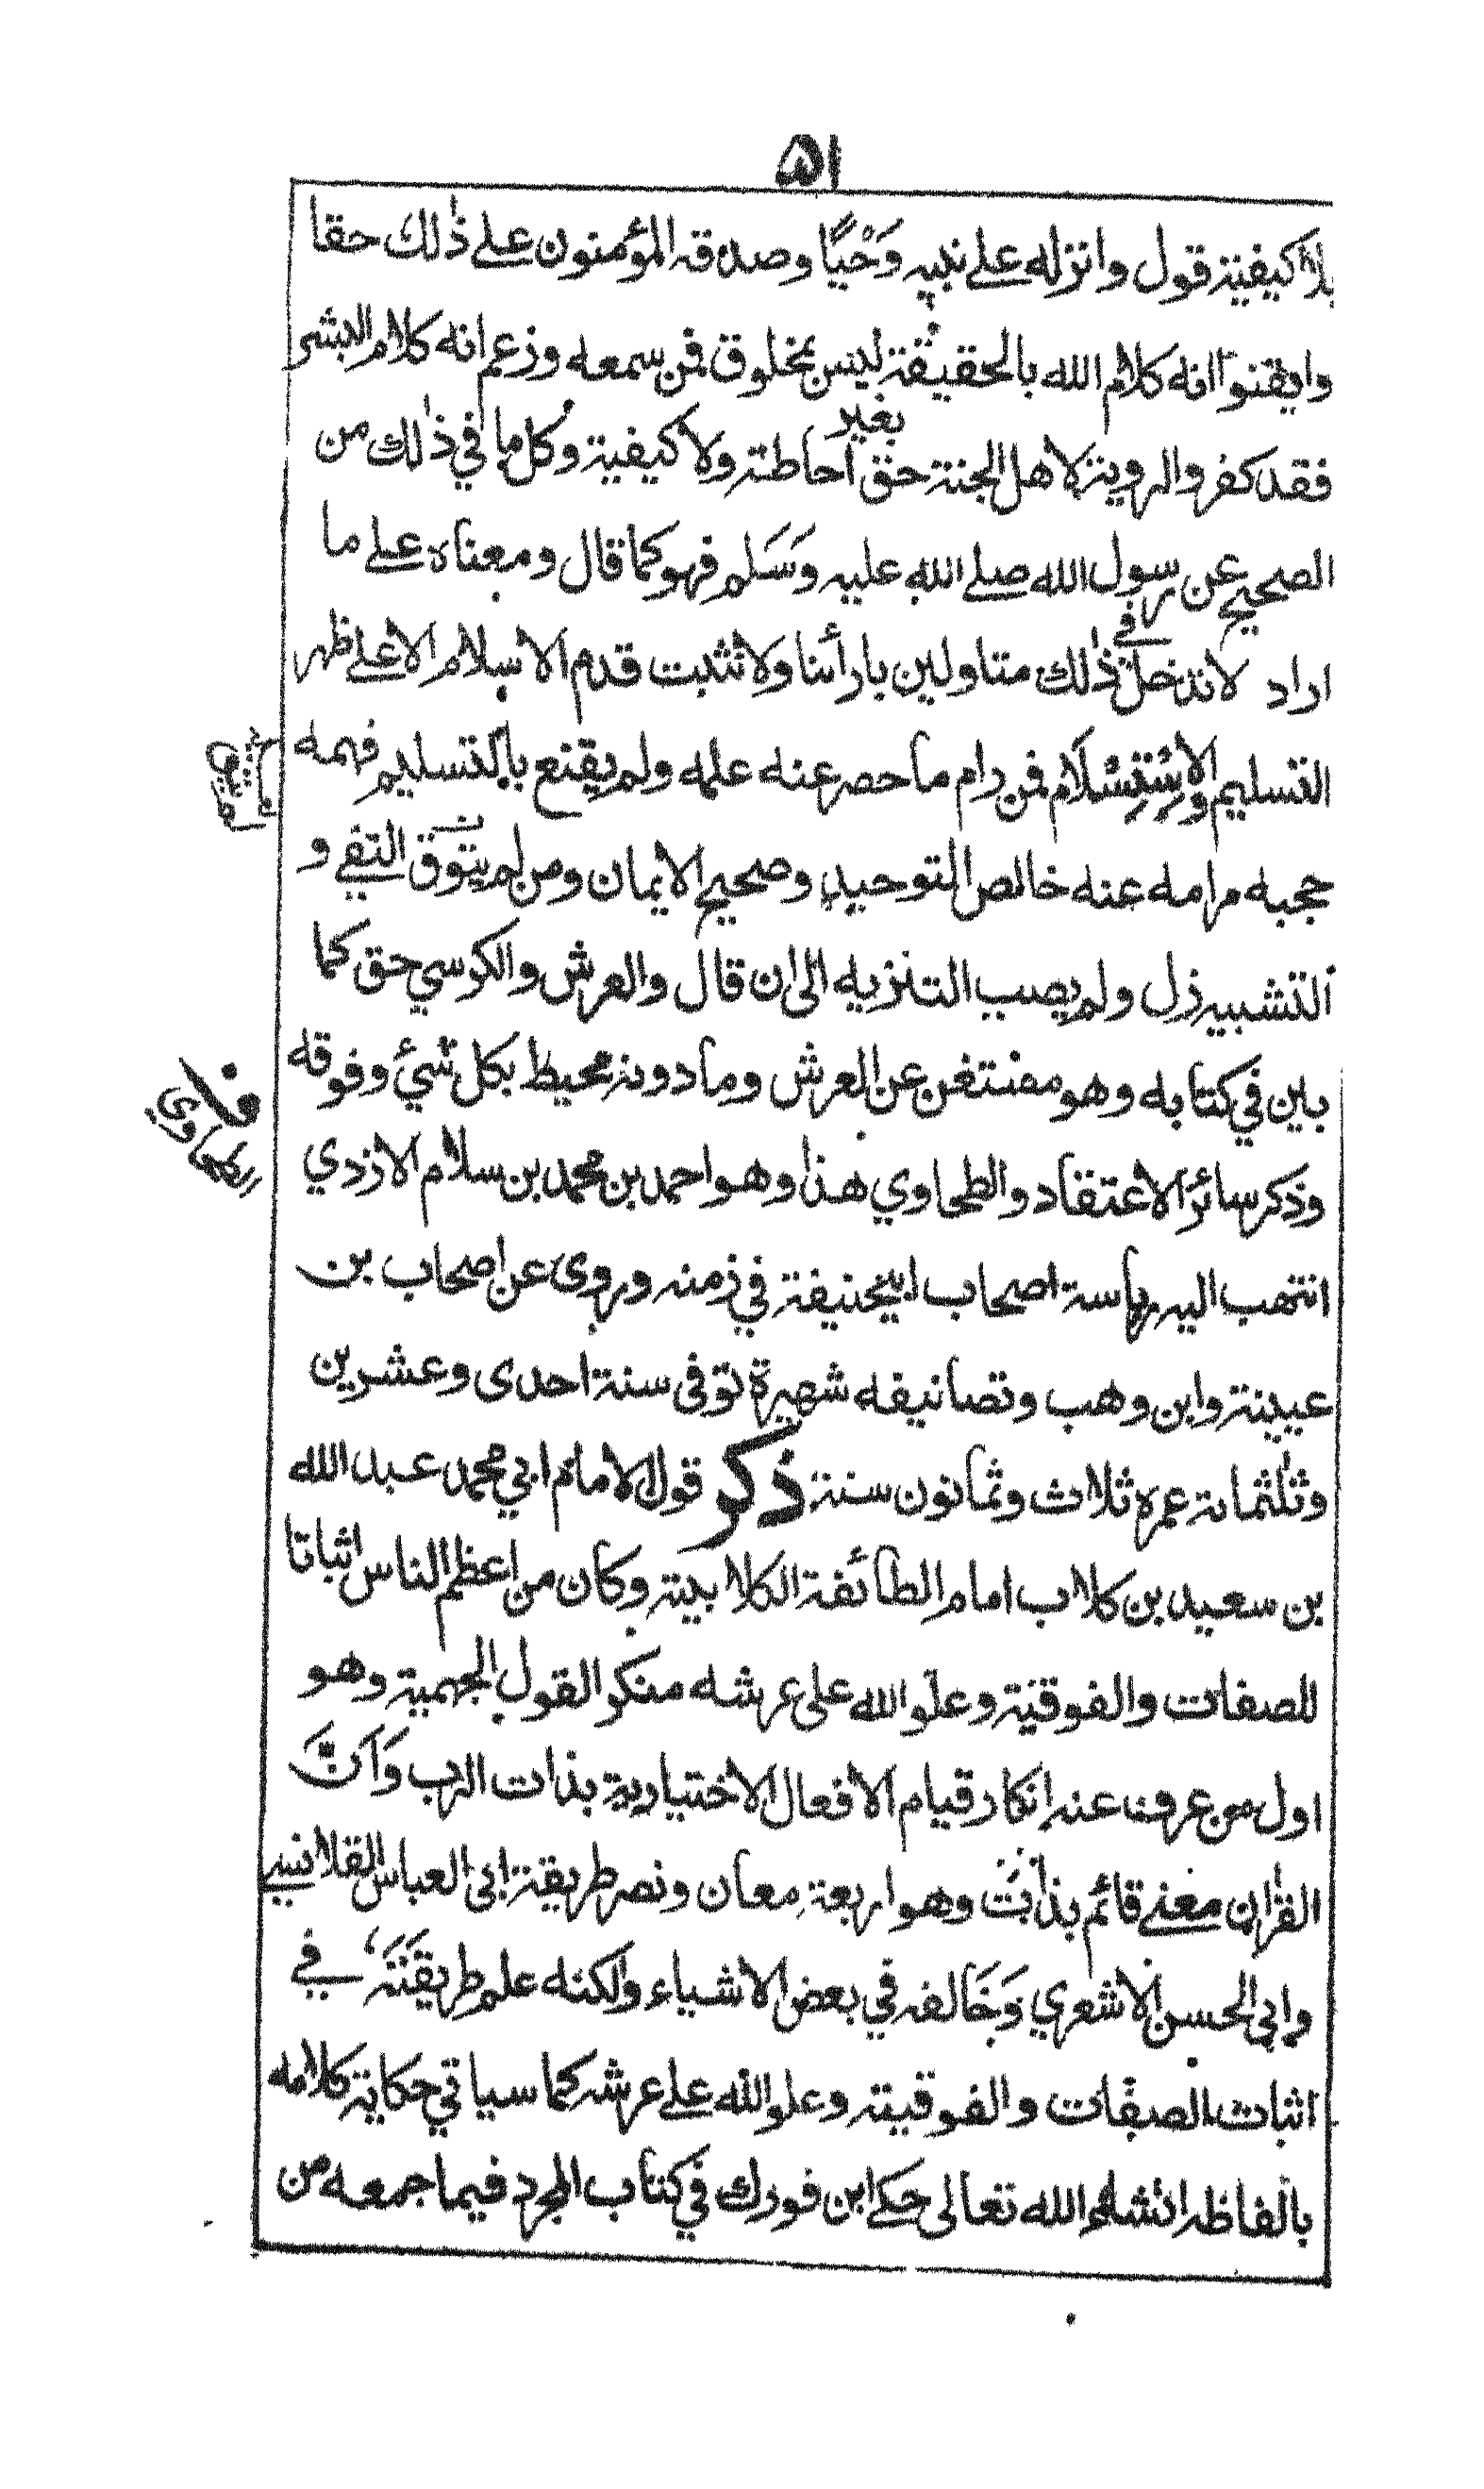 ۵۱
بلا كيفية قول وانزله علے نبيه وَحْيًا وصدقه المؤمنون علے ذٰلك حقا
وايقنوا انه كلام الله بالحقيقة ليس بمخلوق فمن سمعه وزعم انه كلام البشر
فقد كفر والروية لاهل الجنة حق بغير احاطة ولا كيفية وكل ما في ذٰلك من
الصحيح عن رسول الله صلے الله عليه وَسَلم فهو كما قال ومعناه علے ما
اراد لا ندخل في ذٰلك متاولين بارأئنا ولا نثبت قدم الاسلام الا علے ظهر
التسليم والاِسْتِسْلَام فمن رام ما حصر عنه علمه ولم يقنع بالتسليم فهمه
حجبه مرامه عنه خالص التوحيد وصحيح الايمان ومن لم يتوق النفے و
التشبيه زل ولم يصب التنزيه الى ان قال والعرش والكرسي حق كما
بين في كتابه وهو مستغن عن العرش وما دونه محيط بكل شيئ وفوقه
وذكر سائر الاعتقاد والطحاوي هذا وهو احمد بن محمد بن سلام الازدي
انتهب اليه رياسة اصحاب ابيحنيفة في زمنه وروى عن اصحاب بن
عيينة وابن وهب وتصانيفه شهيرة توفى سنة احدى وعشرين
وثلثمائة عمره ثلاث وثمانون سنة ذكر قول الامام ابي محمد عبد الله
بن سعيد بن كلاب امام الطائفة الكلابية وكان من اعظم الناس اثباتا
للصفات والفوقية وعلو الله على عرشه منكر القول الجهمية وهو
اول من عرف عنه انكار قيام الافعال الاختيارية بذات الرب وَاَنَّ
القران معنے قائم بذات وهو اربعة معان ونصر طريقة ابى العباس القلانسے
وابى الحسن الاشعري وَخَالفه في بعض الاشياء ولكنه علم طريقته في
اثبات الصفات والفوقية وعلو الله علے عرشه كما سياتي حكاية كلامه
بالفاظه انشاء الله تعالى حكے ابن فورك في كتاب المجرد فيما جمعه من
الطحاوي